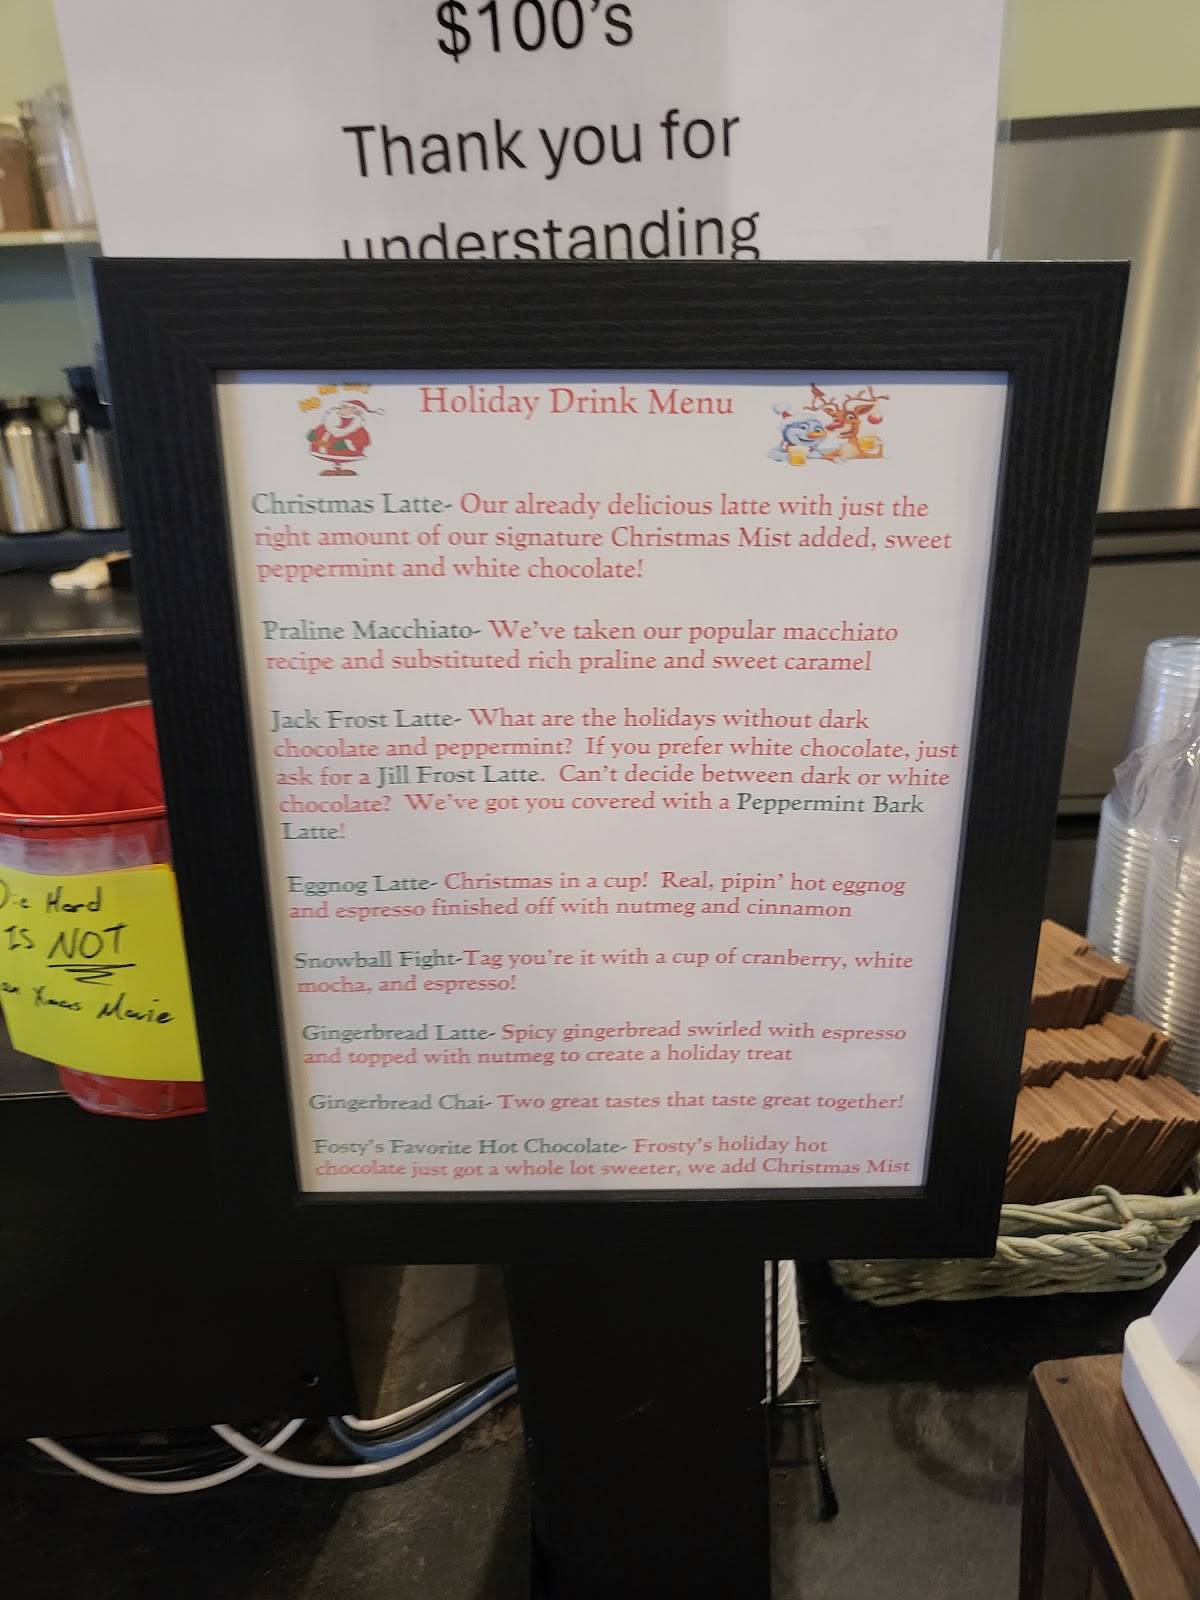 $100's
Thank you for
understanding
Holiday Drink Menu
Christmas Latte- Our already delicious latte with just the
right amount of our signature Christmas Mist added, sweet
peppermint and white chocolate!
Praline Macchiato- We've taken our popular macchiato
recipe and substituted rich praline and sweet caramel
Jack Frost Latte- What are the holidays without dark
chocolate and peppermint? If you prefer white chocolate, just
ask for a Jill Frost Latte. Can't decide between dark or white
chocolate? We've got you covered with a Peppermint Bark
Latte!
Eggnog Latte- Christmas in a cup! Real, pipin' hot eggnog
and espresso finished off with nutmeg and cinnamon
Snowball Fight-Tag you're it with a cup of cranberry, white
mocha, and espresso!
Gingerbread Latte- Spicy gingerbread swirled with espresso
and topped with nutmeg to create a holiday treat
Gingerbread Chai- Two great tastes that taste great together!
Fosty's Favorite Hot Chocolate- Frosty's holiday hot
chocolate just got a whole lot sweeter, we add Christmas Mist
Die Hard
IS NOT
an Xmas Movie